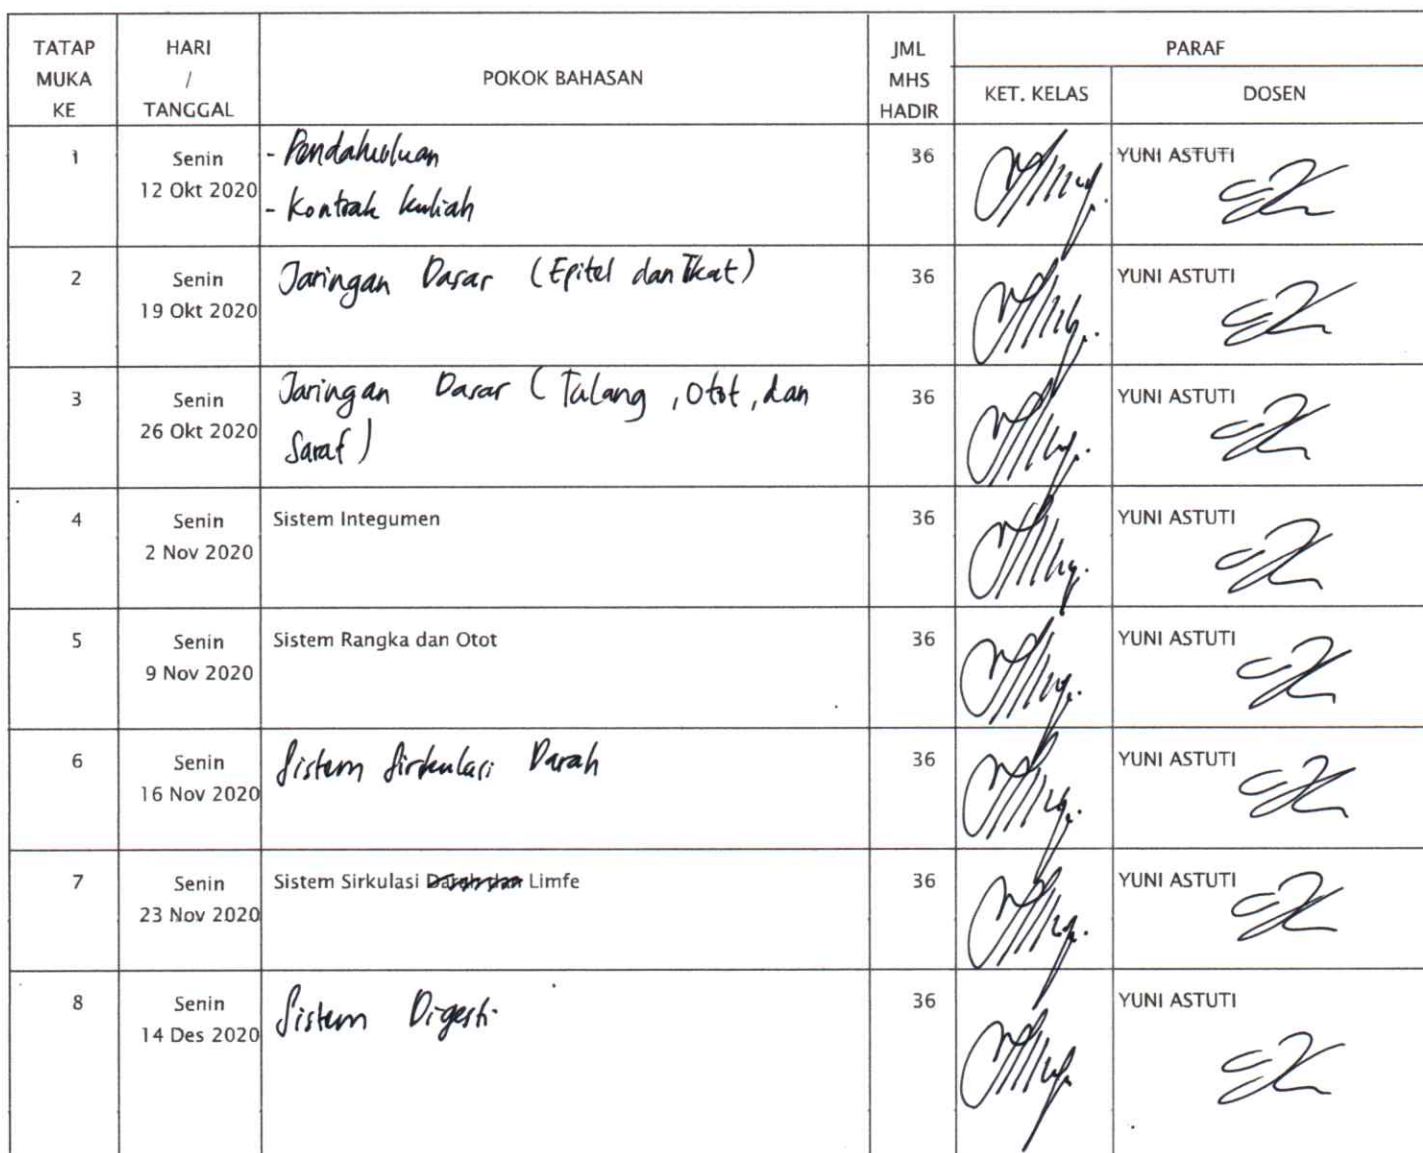 TATAP MUKA KE HARI / TANGGAL POKOK BAHASAN JML MHS HADIR PARAF
KET. KELAS DOSEN
1 Senin 12 Okt 2020 - Pendahuluan 36 YUNI ASTUTI
- Kontrak kuliah
2 Senin 19 Okt 2020 Jaringan Dasar (Epitel dan Ikat) 36 YUNI ASTUTI
3 Senin 26 Okt 2020 Jaringan Dasar (Tulang, Otot, dan 36 YUNI ASTUTI
Saraf)
4 Senin 2 Nov 2020 Sistem Integumen 36 YUNI ASTUTI
5 Senin 9 Nov 2020 Sistem Rangka dan Otot 36 YUNI ASTUTI
6 Senin 16 Nov 2020 Sistem Sirkulasi Darah 36 YUNI ASTUTI
7 Senin 23 Nov 2020 Sistem Sirkulasi Darah dan Limfe 36 YUNI ASTUTI
8 Senin 14 Des 2020 Sistem Digesti 36 YUNI ASTUTI